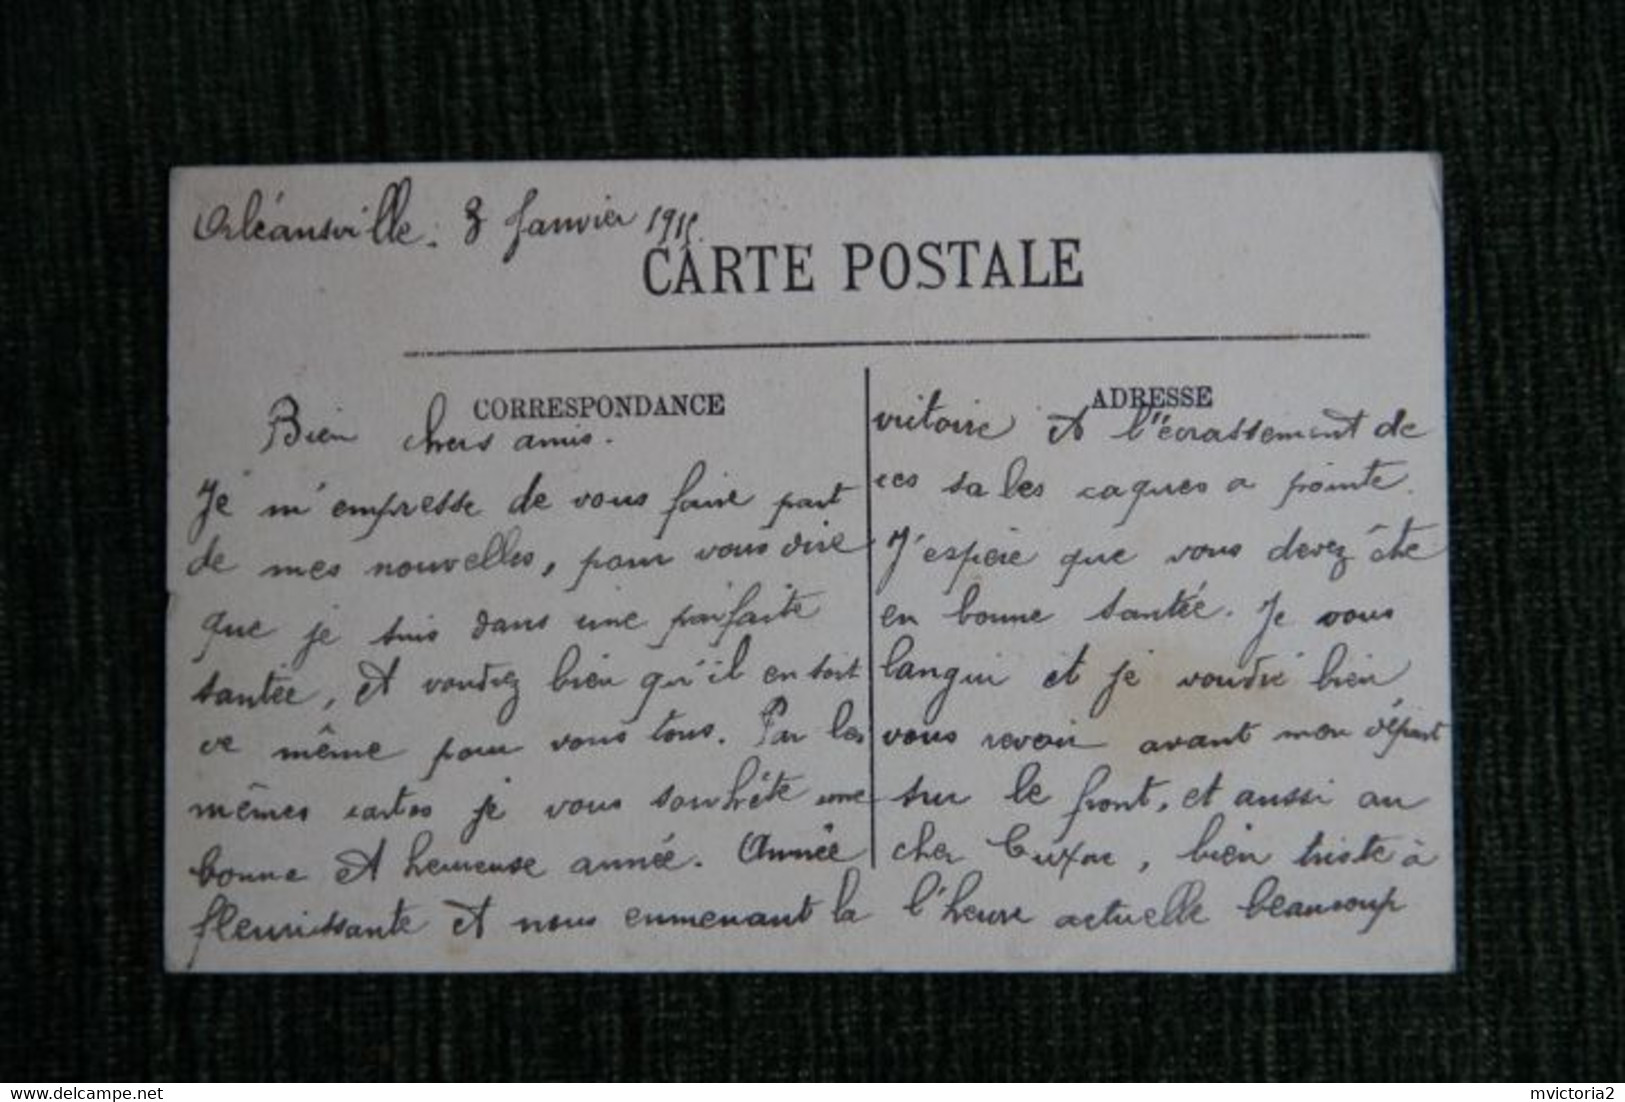 Orléansville. 3 Janvier 1915.
CARTE POSTALE
CORRESPONDANCE
Bien chers amis.
Je m'empresse de vous faire part
de mes nouvelles, pour vous dire
que je suis dans une parfaite
santée, et voudrez bien qu'il en soit
de même pour vous tous. Par les
mêmes cartes je vous souhête une
bonne et heureuse année. Année
fleurissante et nous enmenant la
ADRESSE
victoire et l'écrassement de
ces sales caques a pointe.
J'espère que vous devez être
en bonne santée. Je vous
langui et je voudré bien
vous revoir avant mon départ
sur le front, et aussi au
cher Cuxac, bien triste à
l'heure actuelle beaucoup
mvictoria2